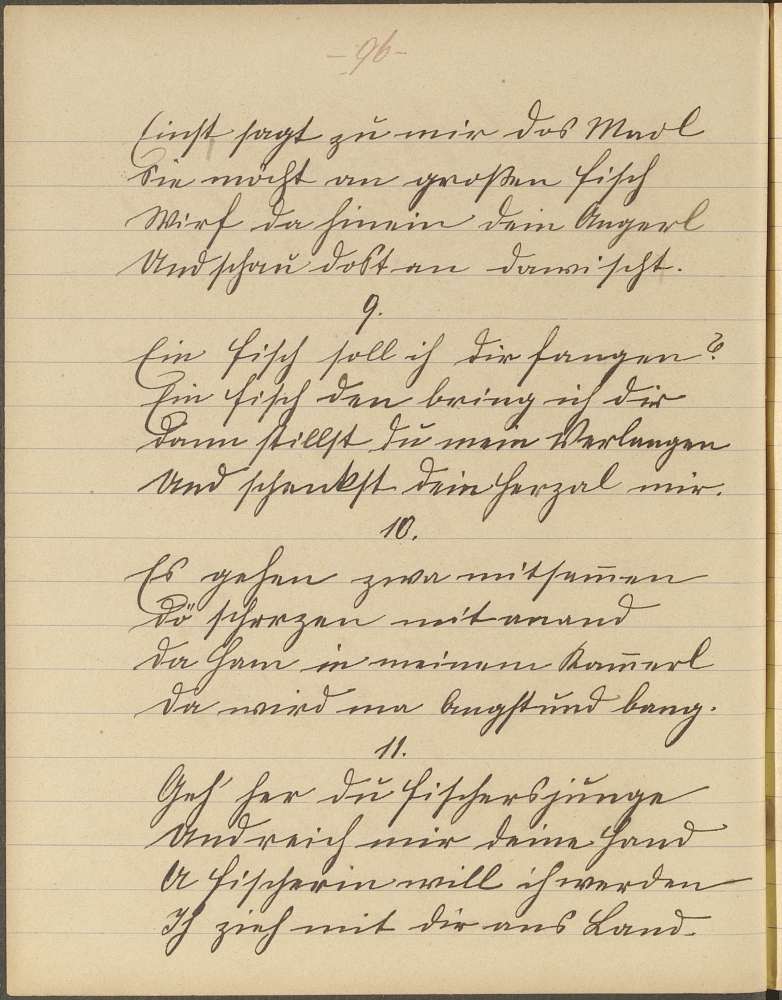 -96-
Einst sagt zu mir das Madl
Sie möcht an großen Fisch
Wirf da hinein dein Angerl
Und schau dost an dawischt.
9.
Ein Fisch soll ich dir fangen?
Ein Fisch den bring ich dir
Dann stillst du mein Verlangen
Und schenkst dein Herzal mir.
10.
Es gehen zwa mitsam̅en
Dö scherzen mitanand
Da ham in meinem Kam̅erl
Da wird ma Angst und bang.
11.
Geh' her du Fischersjunge
Und reich mir deine Hand
A Fischerin will ich werden
Ich zieh mit dir ans Land.